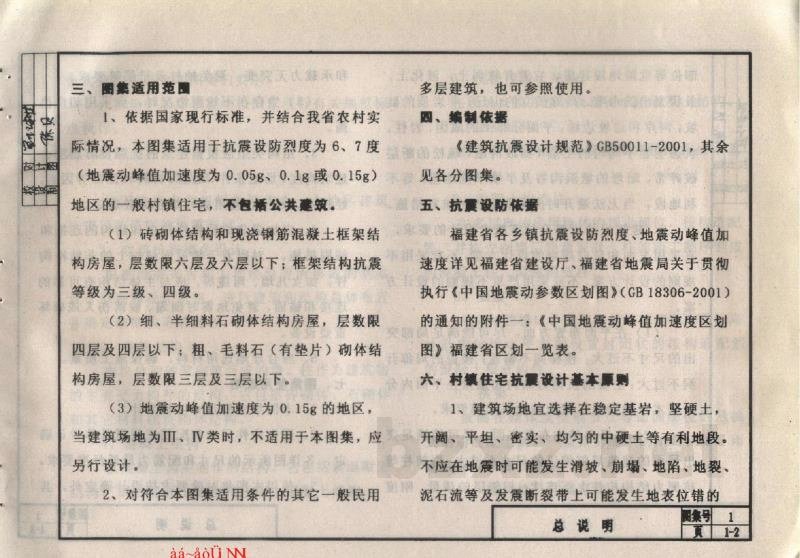 三、图集适用范围
1、依据国家现行标准，并结合我省农村实
际情况，本图集适用于抗震设防烈度为 6、7 度
（地震动峰值加速度为 0.05g、0.1g 或 0.15g）
地区的一般村镇住宅，不包括公共建筑。
（1）砖砌体结构和现浇钢筋混凝土框架结
构房屋，层数限六层及六层以下；框架结构抗震
等级为三级、四级。
（2）细、半细料石砌体结构房屋，层数限
四层及四层以下；粗、毛料石（有垫片）砌体结
构房屋，层数限三层及三层以下。
（3）地震动峰值加速度为 0.15g 的地区，
当建筑场地为Ⅲ、Ⅳ类时，不适用于本图集，应
另行设计。
2、对符合本图集适用条件的其它一般民用
多层建筑，也可参照使用。
四、编制依据
《建筑抗震设计规范》GB50011-2001，其余
见各分图集。
五、抗震设防依据
福建省各乡镇抗震设防烈度、地震动峰值加
速度详见福建省建设厅、福建省地震局关于贯彻
执行《中国地震动参数区划图》（GB 18306-2001）
的通知的附件一：《中国地震动峰值加速度区划
图》福建省区划一览表。
六、村镇住宅抗震设计基本原则
1、建筑场地宜选择在稳定基岩，坚硬土，
开阔、平坦、密实、均匀的中硬土等有利地段。
不应在地震时可能发生滑坡、崩塌、地陷、地裂、
泥石流等及发震断裂带上可能发生地表位错的
总 说 明
图集号 1
页 1-2
àá~åòÜ NN